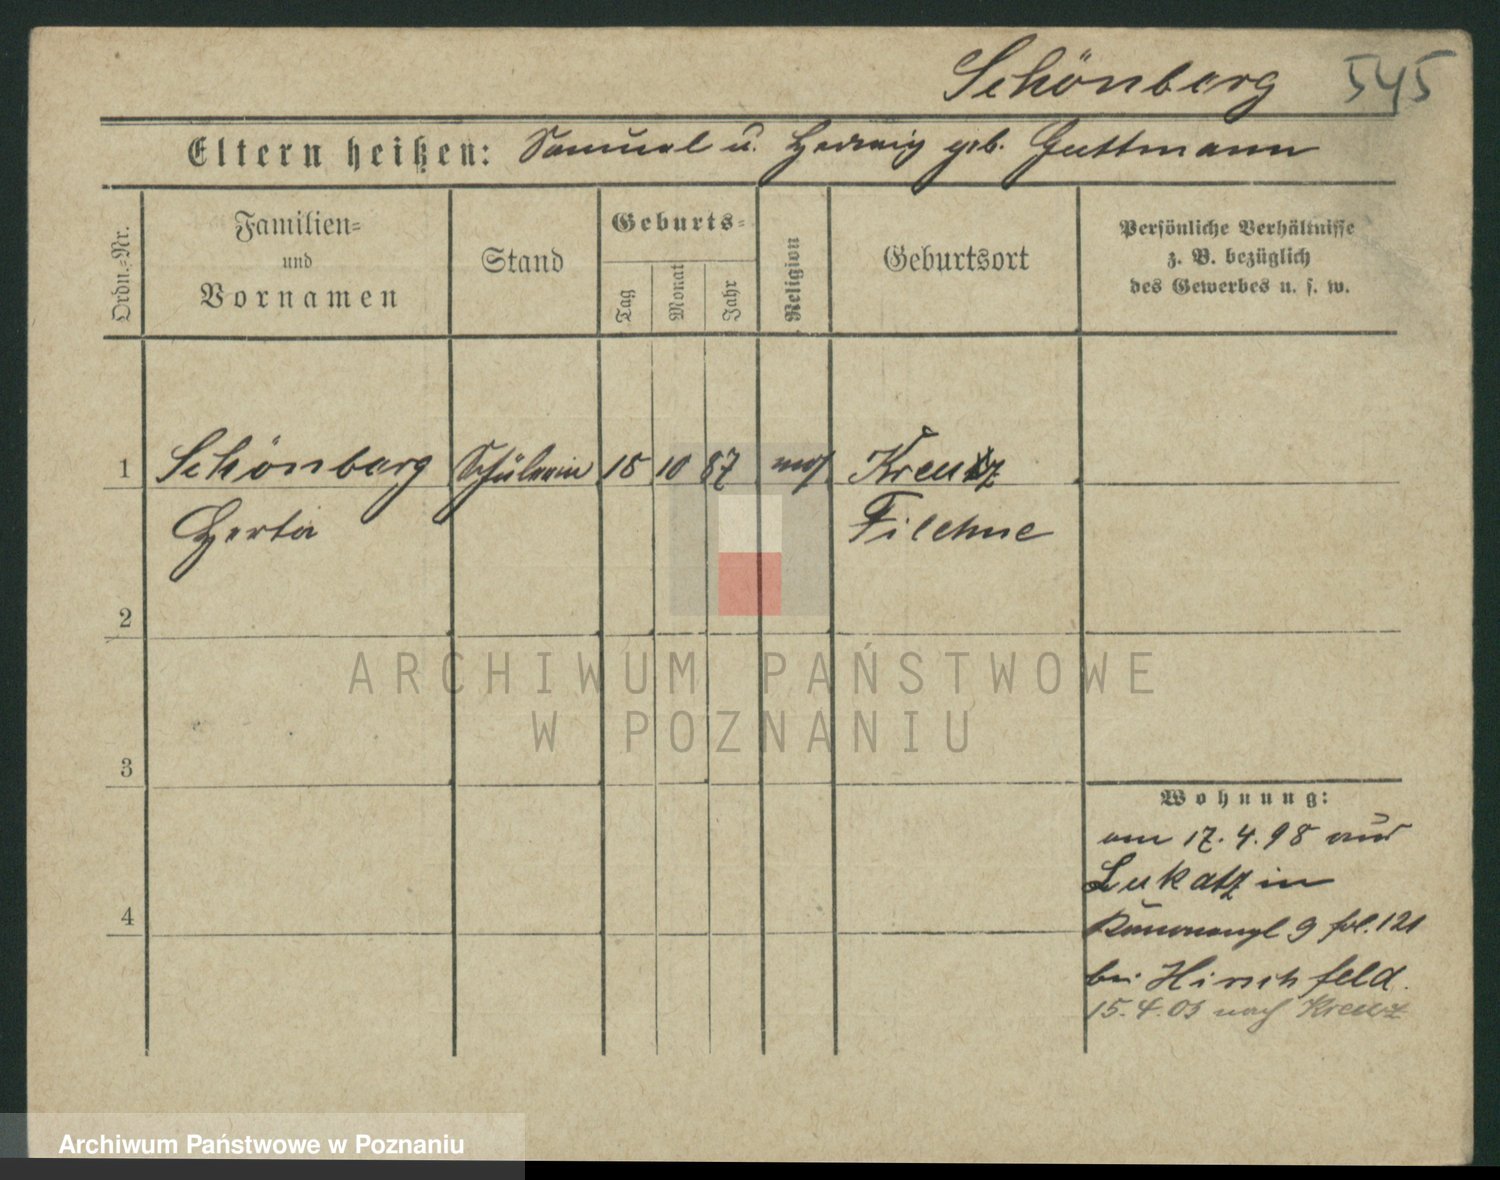 Schönberg 545
Eltern heißen: Samuel u. Hedwig geb. Guttmann
Ordn.-Nr.
Familien-
und
Vornamen
Stand
Geburts-
Tag
Monat
Jahr
Religion
Geburtsort
Persönliche Verhältnisse
z. B. bezüglich
des Gewerbes u. s. w.
1 Schönberg Schülerin 15 10 87 mos Kreuz
Herta Filehne
2
ARCHIWUM PAŃSTWOWE
W POZNANIU
3
Wohnung:
am 17.4.98 aus
Lukatz in
9 fol. 121
4
bei Hirschfeld.
15.4.03 nach Kreuz
Archiwum Państwowe w Poznaniu